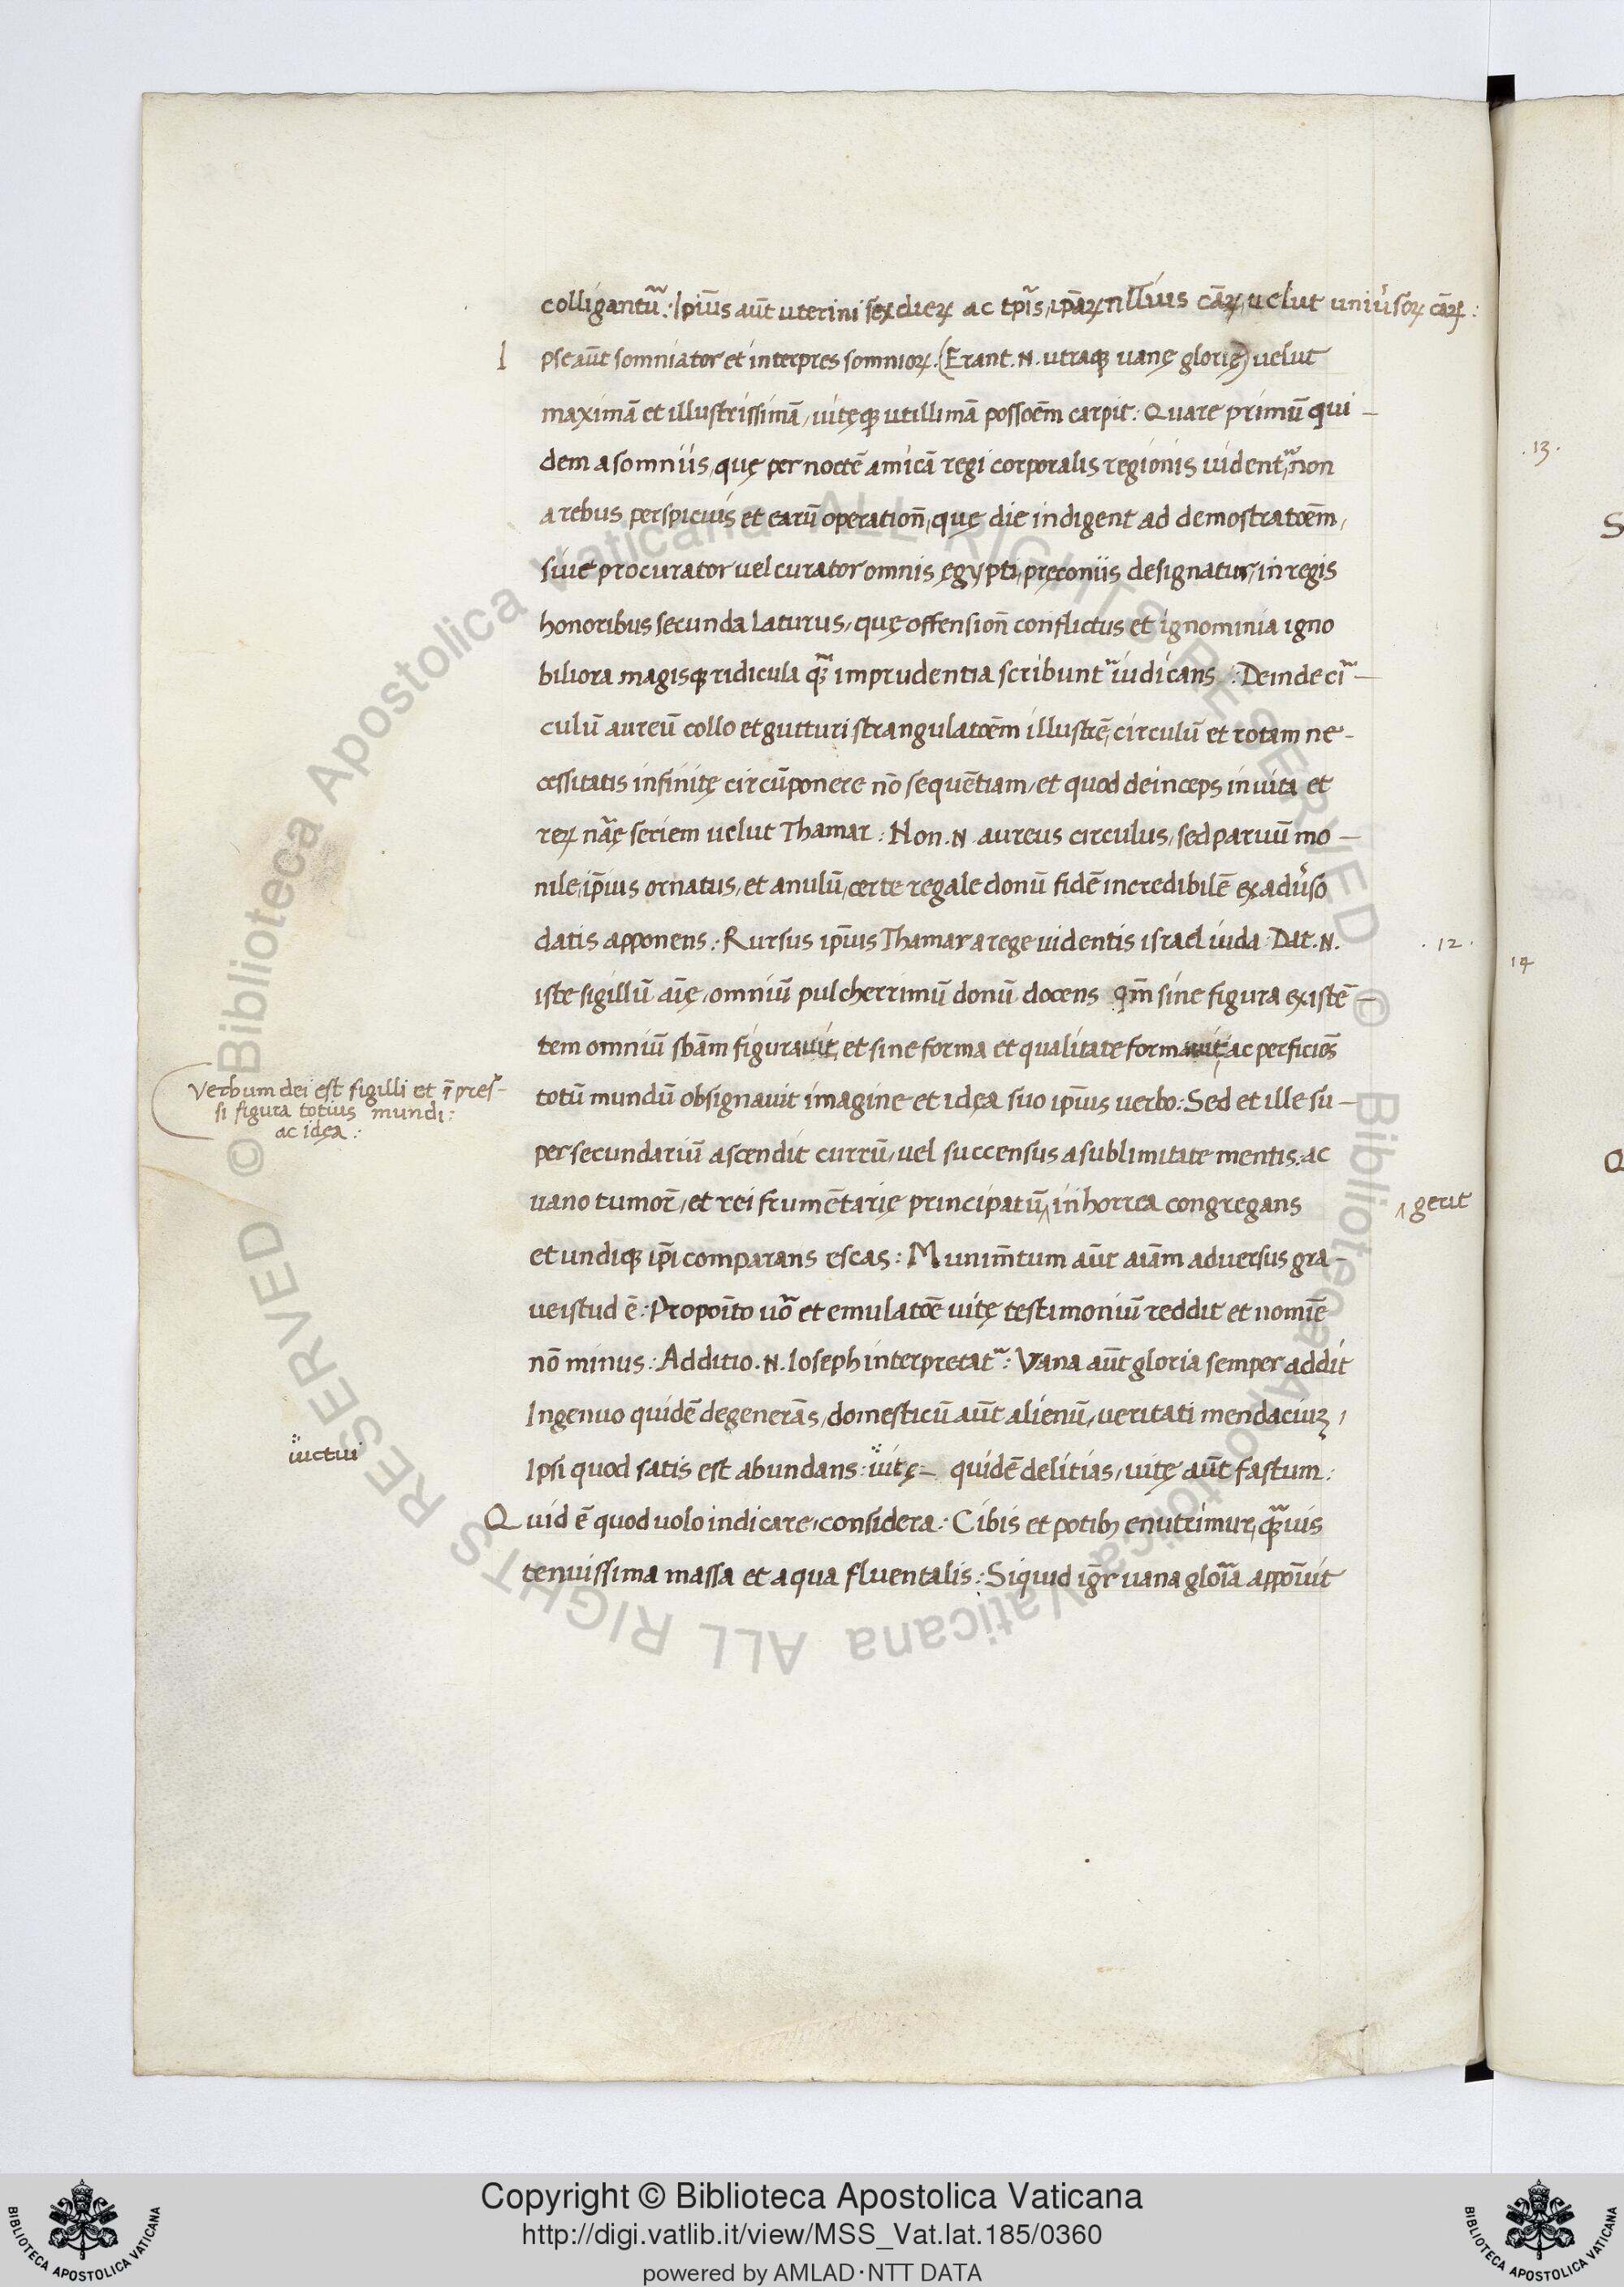 colligantũr: Ipĩus aũt uterini sex dieꝝ ac tp̃is, ip̃aꝝ nullius cãꝝ, uelut uniũsoꝝ cãꝝ:
Ipse aũt somniator et interpres somnioꝝ. (Erant .N. utraqꝫ uanę glorię) uelut
maximã et illustrissimã, uitęqꝫ utillimã possoẽm carpit: Quare primũ qui-
dem a somniis, quę per noctẽ amicã regi corporalis regionis uident̃, non
a rebus perspicuis et earũ operation̄, quę die indigent ad demostratoẽm,
siue procurator uel curator omnis ęgypti, pręconiis designatur, in regis
honoribus secunda laturus, quę offension̄ conflictus et ignominia igno
biliora magisqꝫ ridicula qꝫ̃ imprudentia scribunt̃ iudicans: Deinde cĩ-
culũ aureũ collo et gutturi strangulatoẽm illustrẽ, circulũ et rotam ne-
cessitatis infinitę circũponere nõ sequẽtiam, et quod deinceps in uita et
reꝝ nãę seriem uelut Thamar: Non .N. aureus circulus, sed paruũ mo-
nile, ip̃ius ornatus, et anulũ, certe regale donũ fidẽ incredibilẽ ex adũso
datis apponens: Rursus ip̃ius Thamar a rege uidentis israel iuda: Dat .N.
iste sigillũ aĩę, omniũ pulcherrimũ donũ docens qm̃ sine figura existẽ-
tem omniũ sbãm figurauit, et sine forma et qualitate formauit, ac perficiẽs
totũ mundũ obsignauit imagine et idęa suo ip̃ius uerbo: Sed et ille su-
per secundariũ ascendit currũ, uel succensus a sublimitate mentis. ac
uano tumor̃, et rei frumẽtarię principatũ, in horrea congregans
‸ gerit
et undiqꝫ ip̃i comparans escas: Munim̃tum aũt aiãm aduersus gra-
ue istud ẽ: Propoĩto uõ et emulatoẽ uitę testimoniũ reddit et nomiẽ
nõ minus: Additio .N. Ioseph interpretat̃: Vana aũt gloria semper addit
Ingenuo quidẽ degenerãs, domesticũ aũt alienũ, ueritati mendaciuꝫ,
Ipsi quod satis est abundans: uitę quidẽ delitias, uitę aũt fastum:
Quid ẽ quod uolo indicare, considera: Cibis et potibꝫ enutrimur, qꝫ̃uis
tenuissima massa et aqua fluentalis: Siquid igr̃ uana gloĩa appoũit
Verbum dei est sigilli et ĩpres-
si figura totius mundi:
ac idęa:
uictui
.12.
.13.
14
S
Q
© Biblioteca Apostolica Vaticana ALL RIGHTS RESERVED © Biblioteca Apostolica Vaticana ALL RIGHTS RESERVED
Copyright © Biblioteca Apostolica Vaticana
http://digi.vatlib.it/view/MSS_Vat.lat.185/0360
powered by AMLAD·NTT DATA
BIBLIOTECA APOSTOLICA VATICANA
BIBLIOTECA APOSTOLICA VATICANA